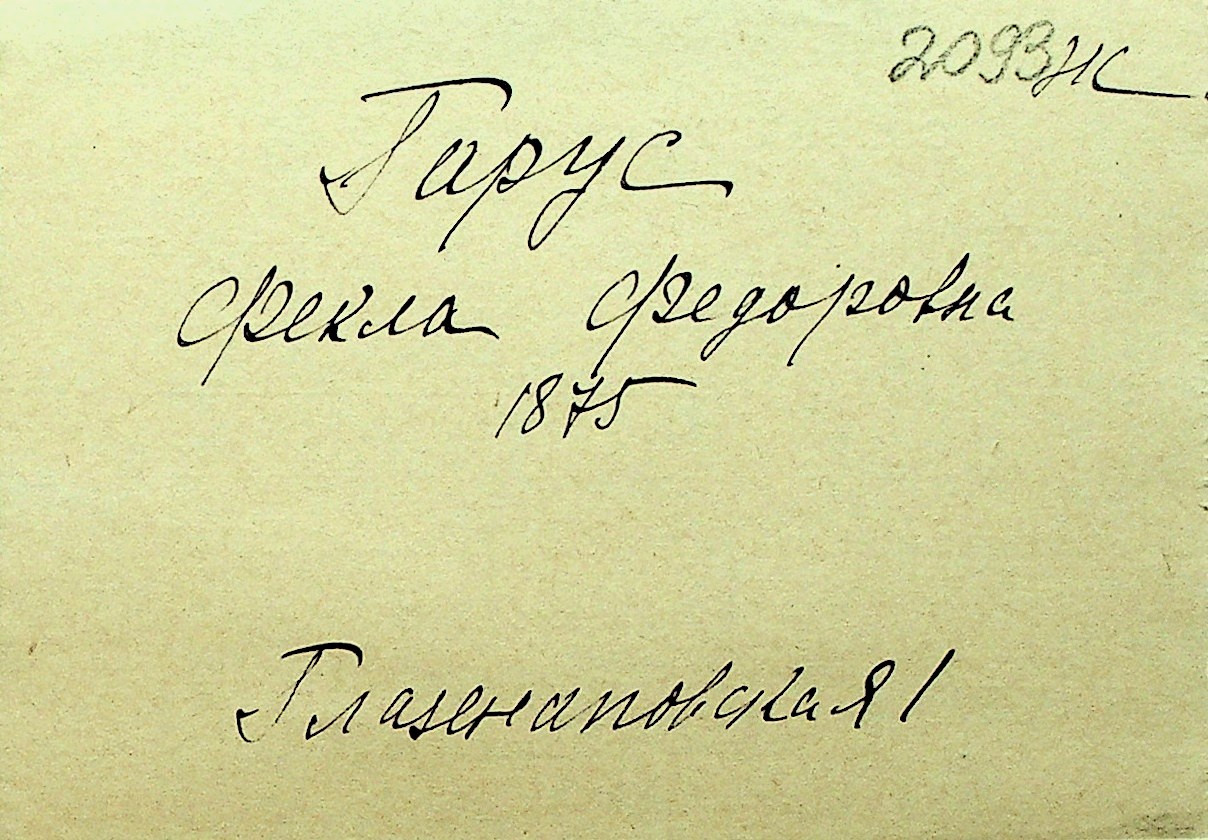 2093Ж
Гарус
Фекла Федоровна
1875
Глазенаповская 1